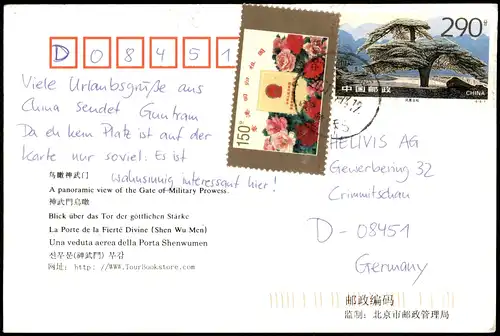 D 08451
Viele Urlaubsgrüße aus
China sendet Guntram
Da eh kein Platz ist auf der
Karte nur soviel: Es ist
wahnsinnig interessant hier!
鸟瞰神武门
A panoramic view of the Gate of Military Prowess.
神武門鳥瞰
Blick über das Tor der göttlichen Stärke
La Porte de la Fierté Divine (Shen Wu Men)
Una veduta aerea della Porta Shenwumen
신무문(神武門) 부감
网址: http: //WWW.Tourbookstore.com
150分
290分
中国邮政
CHINA
HELIVIS AG
Gewerbering 32
Crimmitschau
D-08451
Germany
邮政编码
监制: 北京市邮政管理局